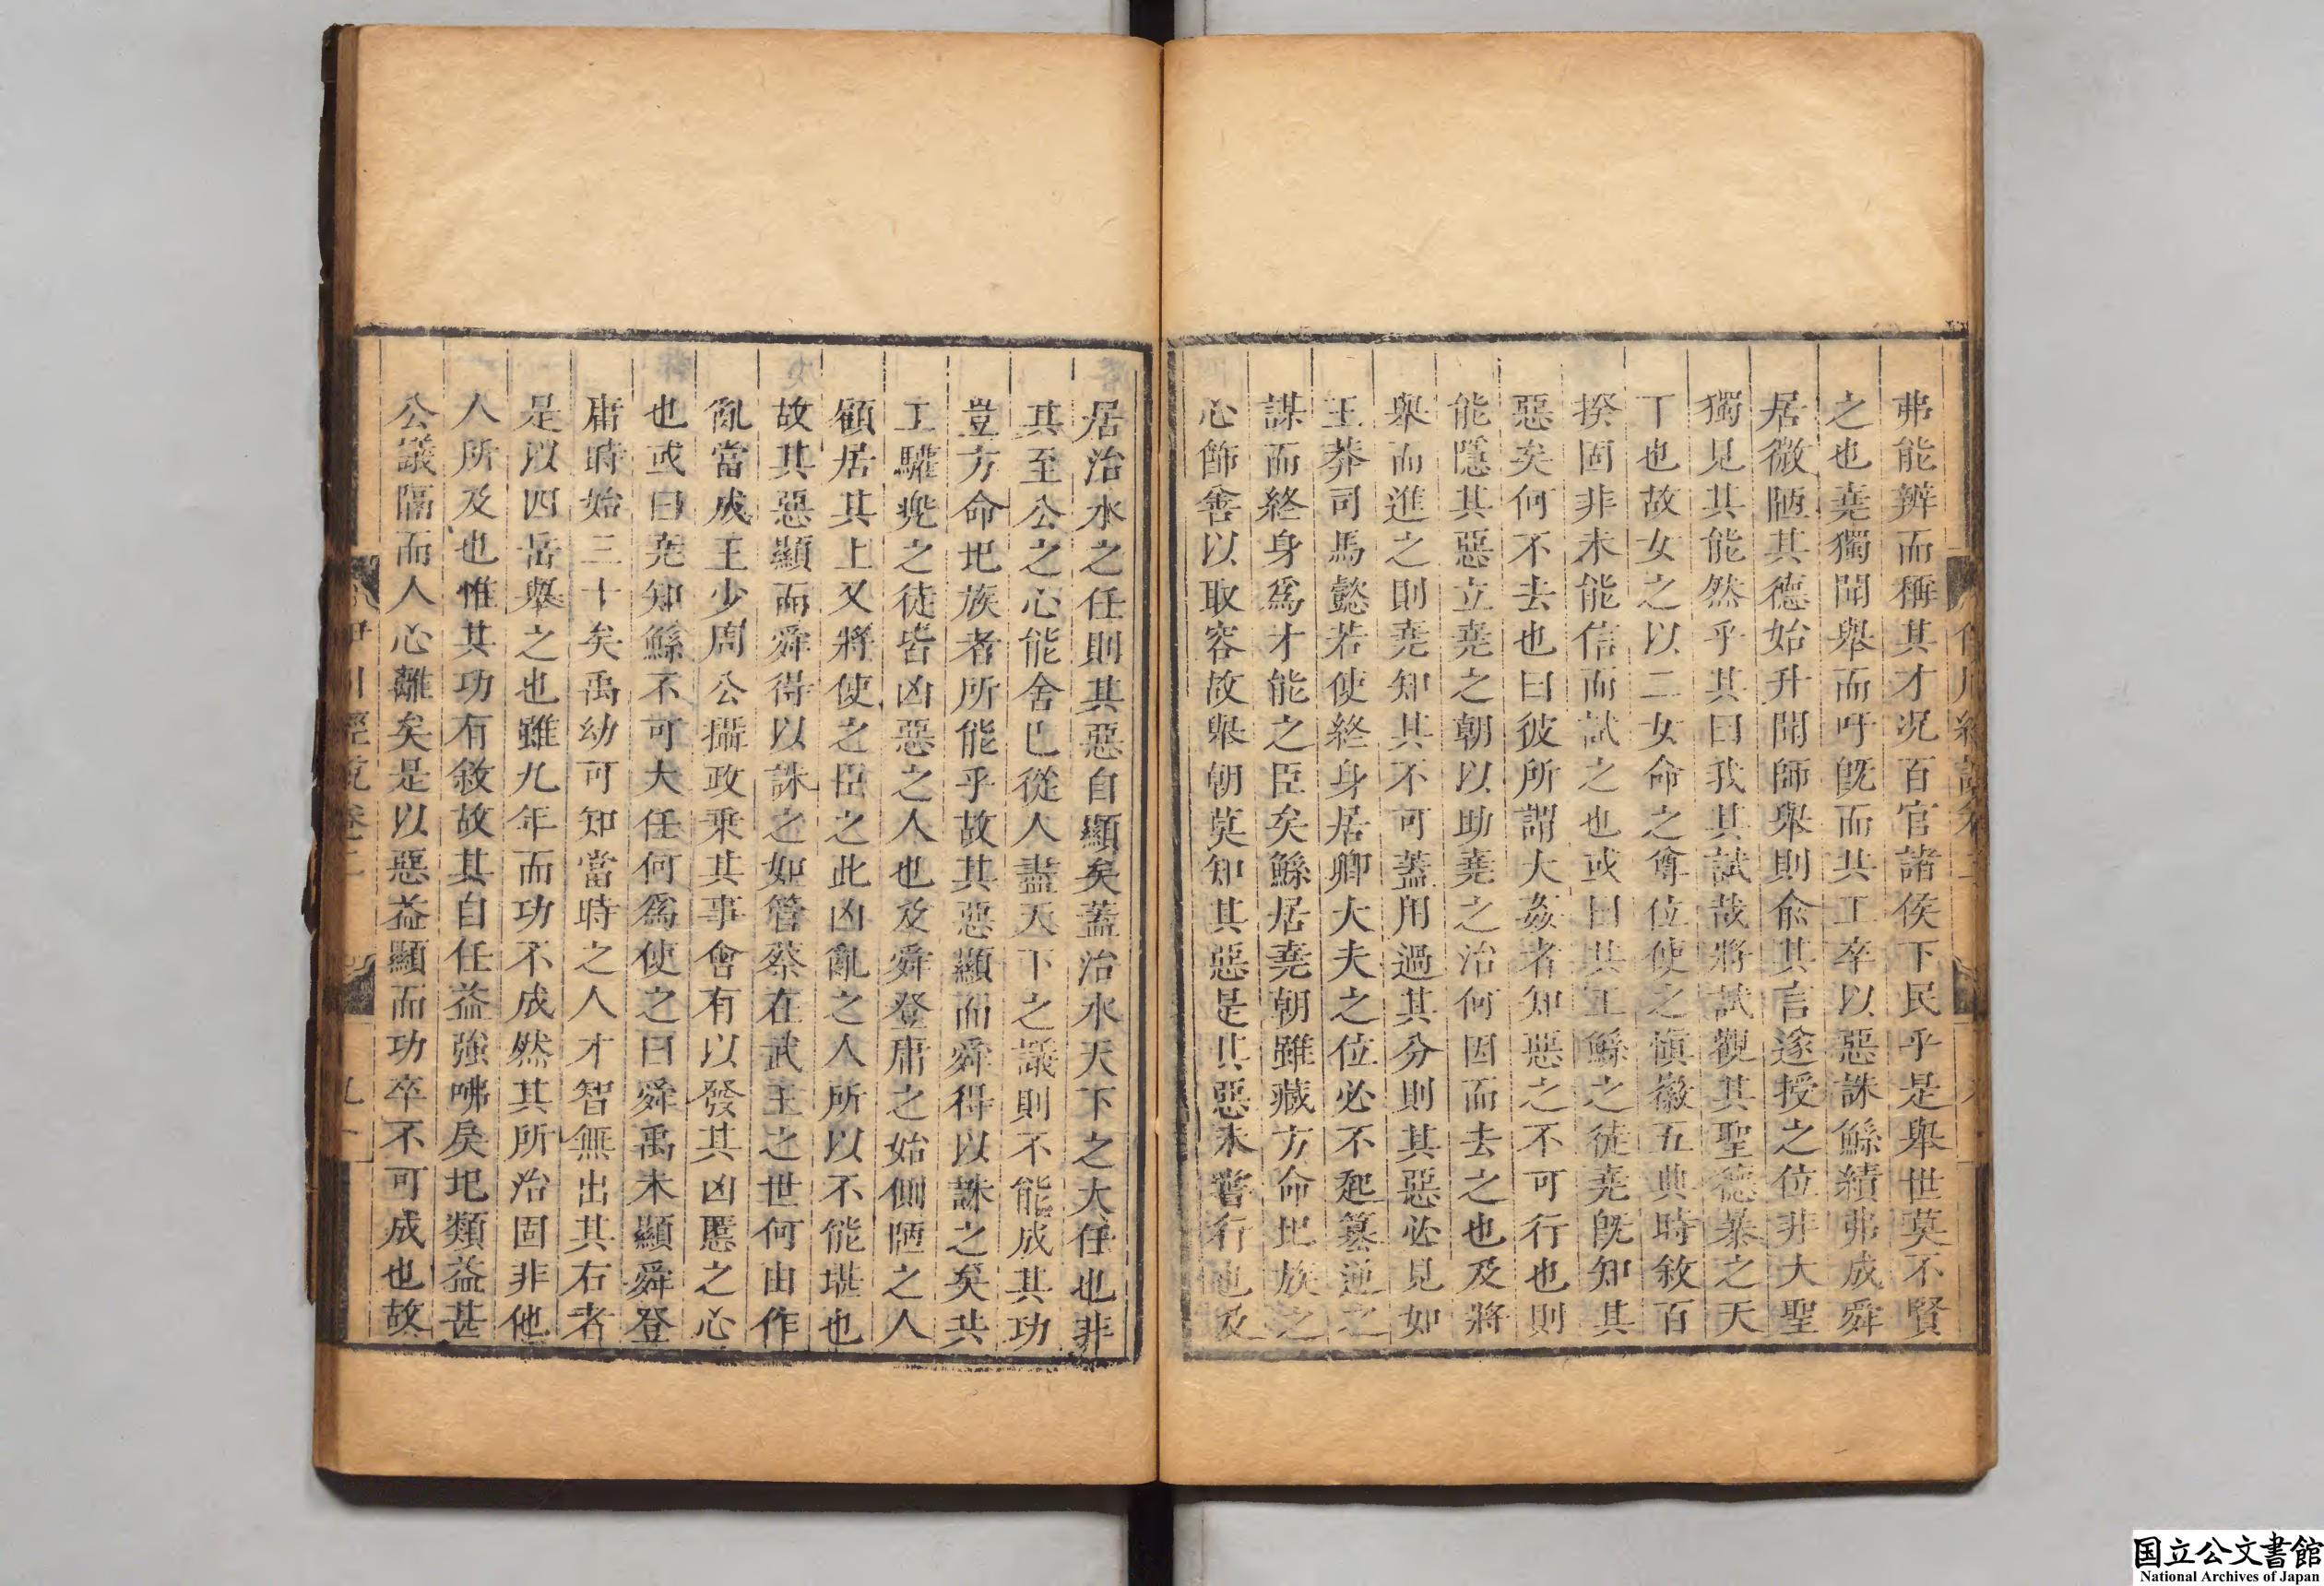 弗能辨而稱其才况百官諸侯下民乎是舉世莫不賢
之也堯獨聞舉而吁旣而共工卒以惡誅鯀績弗成舜
居微陋其德始升聞師舉則俞其言遂授之位非大聖
獨見其能然乎其曰我其試哉將試觀其聖德暴之天
丁也故女之以二女命之尊位使之愼徽五典時敘百
揆固非未能信而試之也或曰共工鯀之徒堯旣知其
惡矣何不去也曰彼所謂大姦者知惡之不可行也則
能隱其惡立堯之朝以助堯之治何因而去之也及將
舉而進之則堯知其不可蓋用過其分則其惡必見如
王莽司馬懿若使終身居卿大夫之位必不起篡逆之
謀而終身爲才能之臣矣鯀居堯朝雖藏方命圮族之
心飾善以取容故舉朝莫知其惡是其惡未嘗行也及
居治水之任則其惡自顯矣蓋治水天下之大任也非
其至公之心能舍己從人盡天下之議則不能成其功
豈方命圮族者所能乎故其惡顯而舜得以誅之矣共
工驩兜之徒皆凶惡之人也及舜登庸之始側陋之人
顧居其上又將使之臣之此凶亂之人所以不能堪也
故其惡顯而舜得以誅之如管蔡在武王之世何由作
亂當成王少周公攝政乘其事會有以發其凶慝之心
也或曰堯知鯀不可大任何爲使之曰舜禹未顯舜登
庸時始三十矣禹幼可知當時之人才智無出其右者
是以四岳舉之也雖九年而功不成然其所治固非他
人所及也惟其功有敘故其自任益強咈戾圮類益甚
公議隔而人心離矣是以惡益顯而功卒不可成也故
伊川經說卷二
国立公文書館
National Archives of Japan